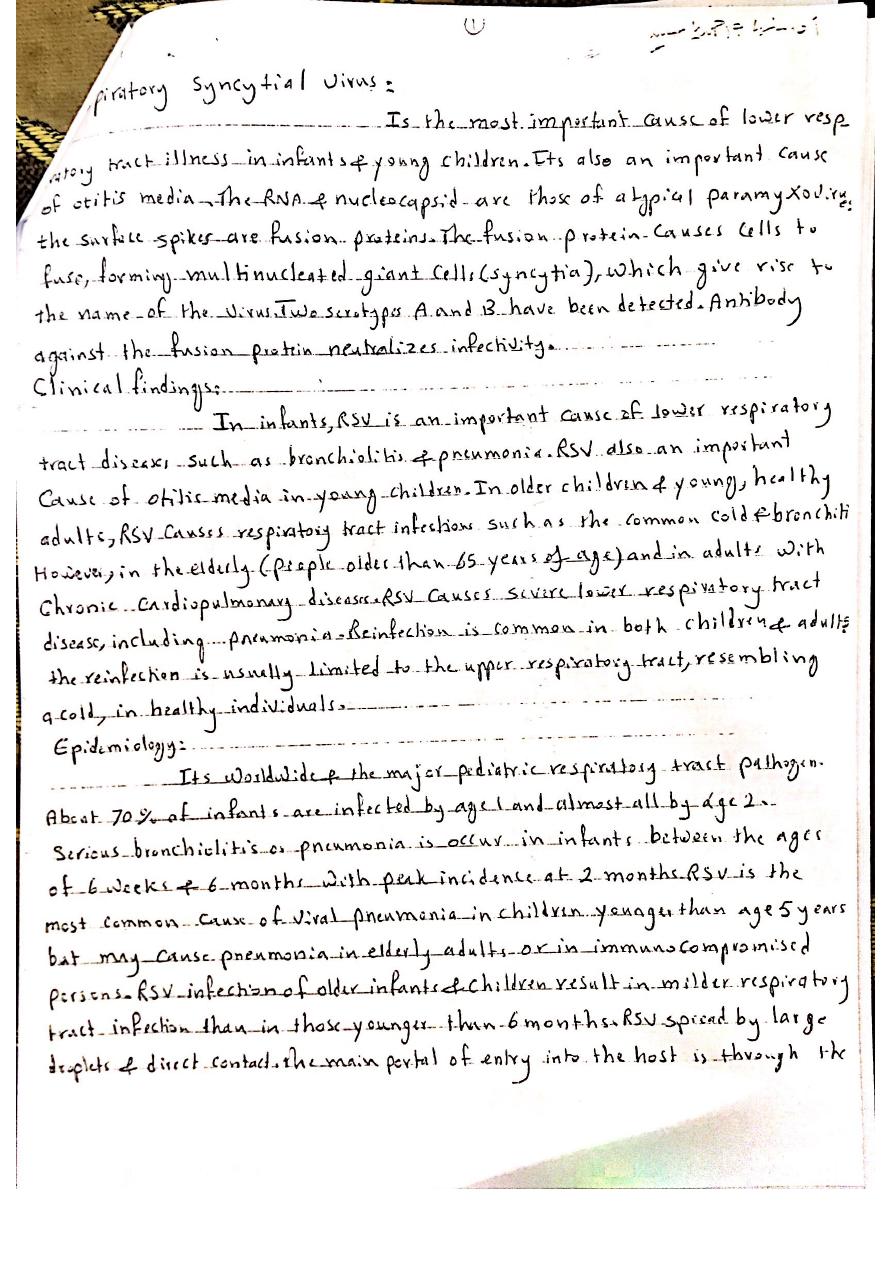 ①
piratory Syncytial Virus:
Is the most important cause of lower resp
atory tract illness in infants & young children. Its also an important cause
of otitis media. The RNA & nucleocapsid are those of a typical paramyxovirus,
the surface spikes are fusion proteins. The fusion protein causes cells to
fuse, forming multinucleated giant cells (syncytia), which give rise to
the name of the virus. Two serotypes A and B have been detected. Antibody
against the fusion protein neutralizes infectivity.
Clinical findings:
In infants, RSV is an important cause of lower respiratory
tract diseases such as bronchiolitis & pneumonia. RSV also an important
Cause of otitis media in young children. In older children & young, healthy
adults, RSV causes respiratory tract infections such as the common cold & bronchiti
However, in the elderly (people older than 65 years of age) and in adults with
Chronic cardiopulmonary diseases. RSV causes severe lower respiratory tract
disease, including pneumonia. Reinfection is common in both children & adults
the reinfection is usually limited to the upper respiratory tract, resembling
a cold, in healthy individuals.
Epidemiology:
Its worldwide & the major pediatric respiratory tract pathogen.
About 70% of infants are infected by age 1 and almost all by age 2.
Serious bronchiolitis or pneumonia is occur in infants between the ages
of 6 weeks & 6 months with peak incidence at 2 months. RSV is the
most common cause of viral pneumonia in children younger than age 5 years
but may cause pneumonia in elderly adults or in immunocompromised
persons. RSV infection of older infants & children result in milder respiratory
tract infection than in those younger than 6 months. RSV spread by large
droplets & direct contact. the main portal of entry into the host is through the